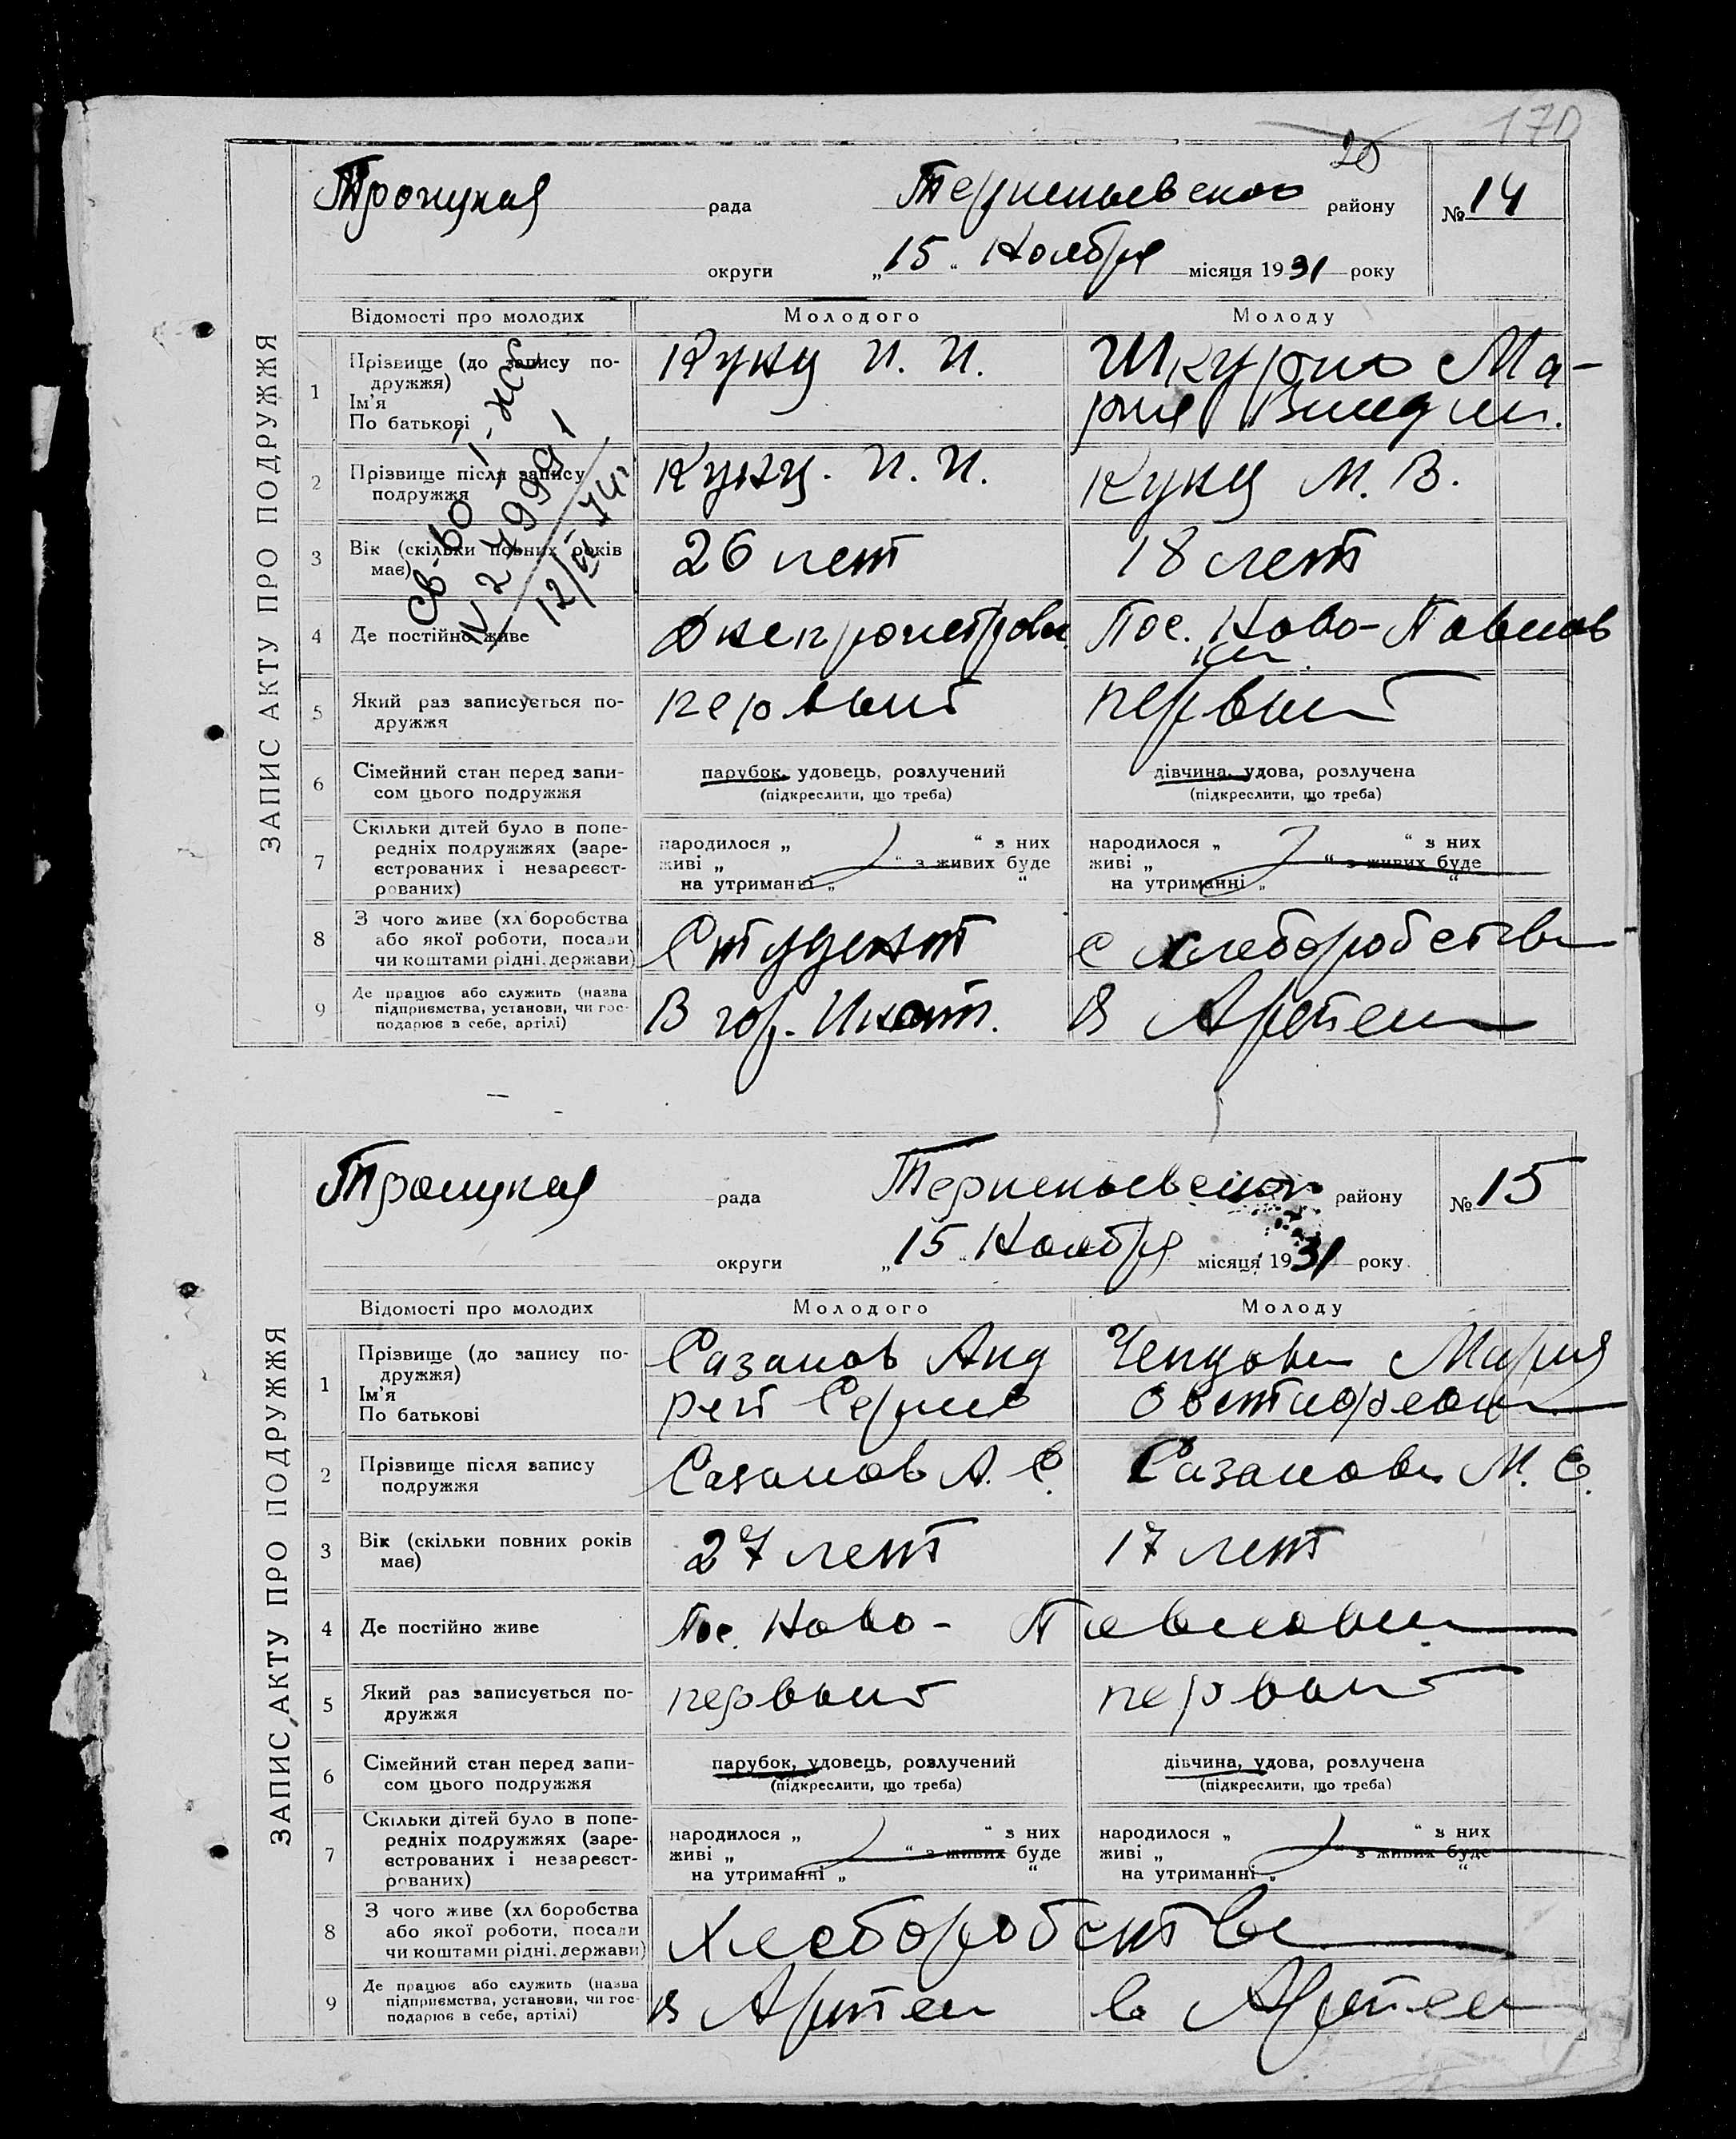 170
20
ЗАПИС АКТУ ПРО ПОДРУЖЖЯ
Троицкая рада Терпеньевского району № 14
округи „15“ Ноября місяця 1931 року
Відомості про молодих Молодого Молоду
1 Прізвище (до запису подружжя) Ім'я По батькові
Кунц И. И.
Шкурко Ма-
рия
2 Прізвище після запису подружжя
Кунц. И. И.
Кунц М. В.
св-во 1-
12/VI 74 г
3 Вік (скільки повних років має)
26 лет
18 лет
4 Де постійно живе
Днепропетровск
Пос. Ново-Павлов
ка
5 Який раз записується подружжя
первый
первый
6 Сімейний стан перед записом цього подружжя
парубок, удовець, розлучений
(підкреслити, що треба)
дівчина, удова, розлучена
(підкреслити, що треба)
7 Скільки дітей було в попередніх подружжях (зареєстрованих і незареєстрованих)
народилося „ “ з них
живі „ “ з живих буде
на утриманні „ “
народилося „ “ з них
живі „ “ з живих буде
на утриманні „ “
8 З чого живе (хліборобства або якої роботи, посади чи коштами рідні, держави)
Студент
с хлеборобства
9 Де працює або служить (назва підприємства, установи, чи господарює в себе, артілі)
В гор. Инст.
В Артели
ЗАПИС АКТУ ПРО ПОДРУЖЖЯ
Троицкая рада Терпеньевского району № 15
округи „15“ Ноября місяця 1931 року
Відомості про молодих Молодого Молоду
1 Прізвище (до запису подружжя) Ім'я По батькові
Сазанов Анд
рей Сергеев
Мария
2 Прізвище після запису подружжя
Сазанов А. С.
Сазанова М. Е.
3 Вік (скільки повних років має)
27 лет
17 лет
4 Де постійно живе
Пос. Ново-Павловка
5 Який раз записується подружжя
первый
первый
6 Сімейний стан перед записом цього подружжя
парубок, удовець, розлучений
(підкреслити, що треба)
дівчина, удова, розлучена
(підкреслити, що треба)
7 Скільки дітей було в попередніх подружжях (зареєстрованих і незареєстрованих)
народилося „ “ з них
живі „ “ з живих буде
на утриманні „ “
народилося „ “ з них
живі „ “ з живих буде
на утриманні „ “
8 З чого живе (хліборобства або якої роботи, посади чи коштами рідні, держави)
Хлеборобства
9 Де працює або служить (назва підприємства, установи, чи господарює в себе, артілі)
В Артели
в Артели